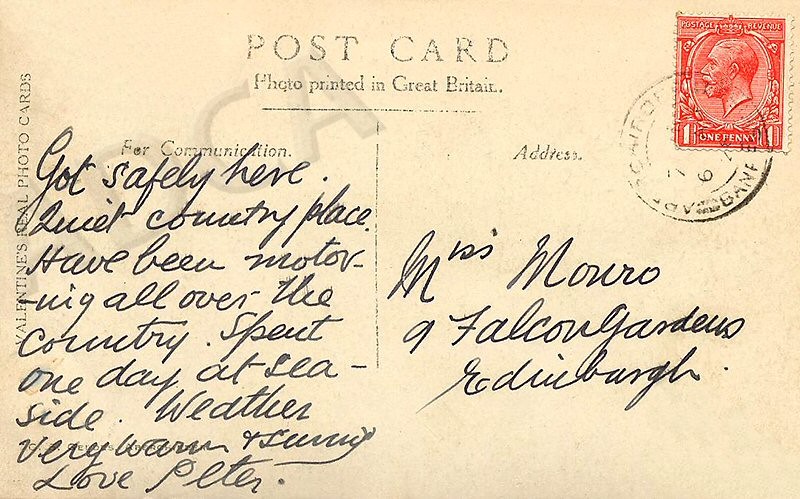 POST CARD
Photo printed in Great Britain.
For Communication.
Address.
VALENTINE'S REAL PHOTO CARDS
Got safely here.
Quiet country place.
Have been motor-
-ing all over the
country. Spent
one day at sea-
side. Weather
very warm & sunny
Love Peter.
Miss Monro
9 Falcon Gardens
Edinburgh.
POSTAGE REVENUE
1 ONE PENNY 1
ABERCHIRDER
BANFF